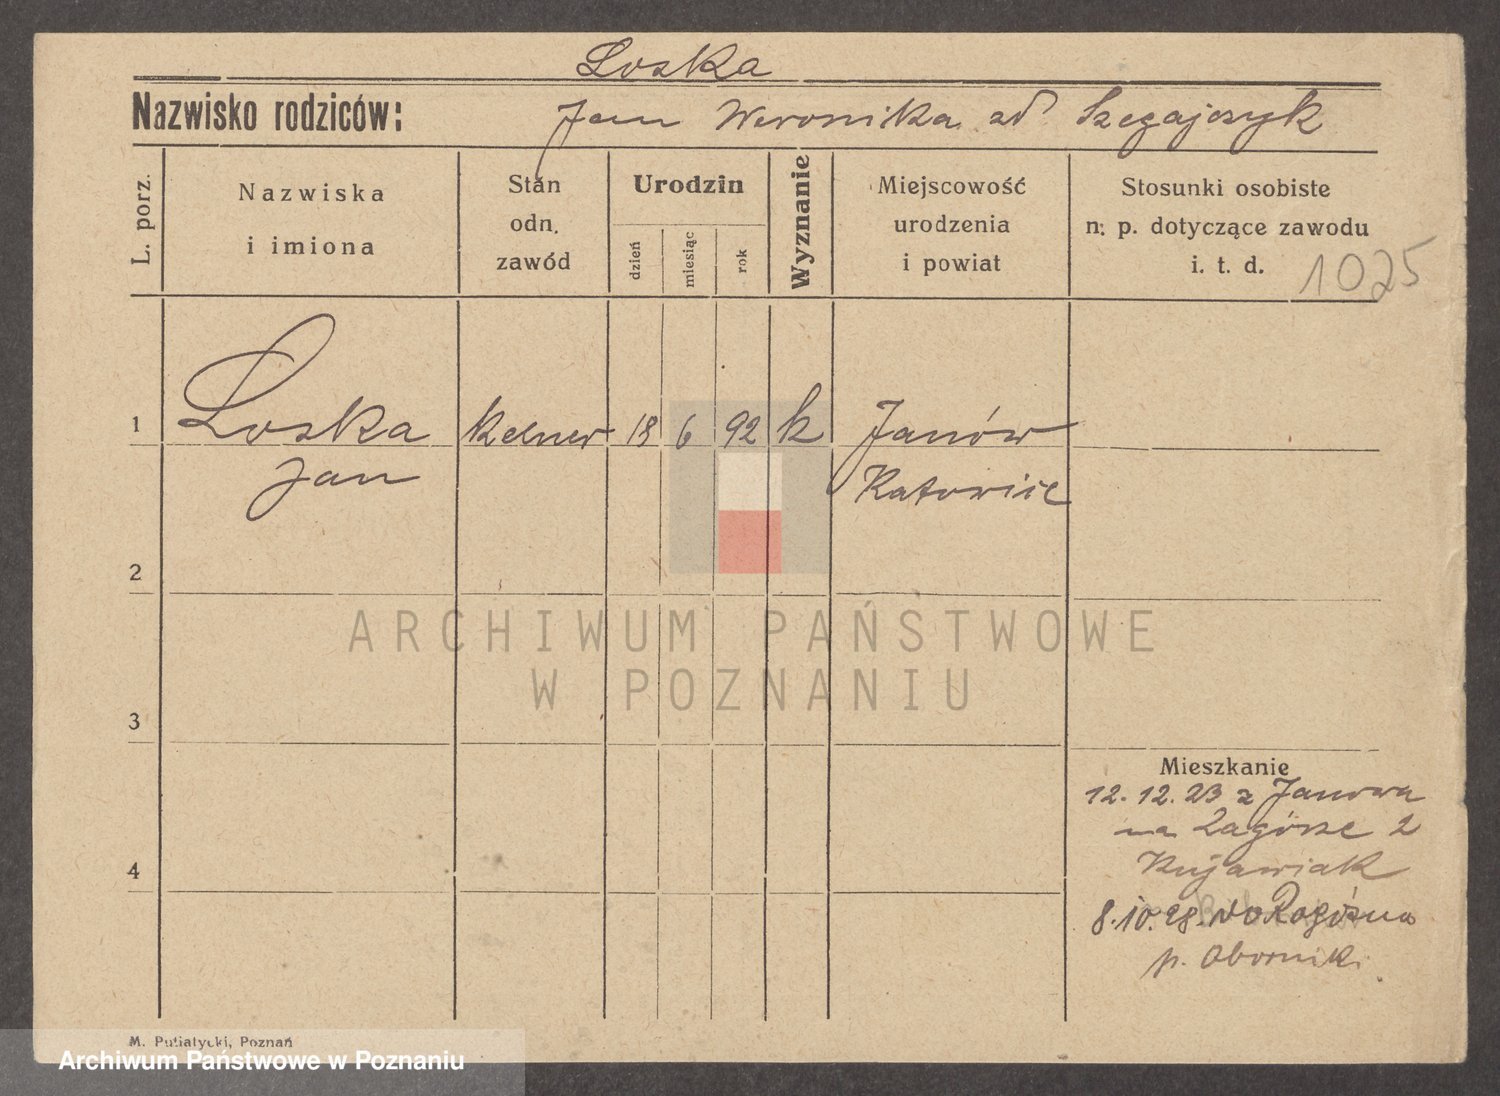 Loska
Nazwisko rodziców: Jan Weronika zd Szegajczyk
L. porz.
Nazwiska
i imiona
Stan
odn.
zawód
Urodzin
dzień
miesiąc
rok
Wyznanie
Miejscowość
urodzenia
i powiat
Stosunki osobiste
n. p. dotyczące zawodu
i. t. d.
1025
1 Loska kelner 18 6 92 k Janów
Jan Katowice
2
3
4
Mieszkanie
12.12.23 z Janowa
na Zagórze 2
Kujawiak
8.10.28. do Rogóźna
p. Oborniki
M. Putiatycki, Poznań
ARCHIWUM PAŃSTWOWE
W POZNANIU
Archiwum Państwowe w Poznaniu